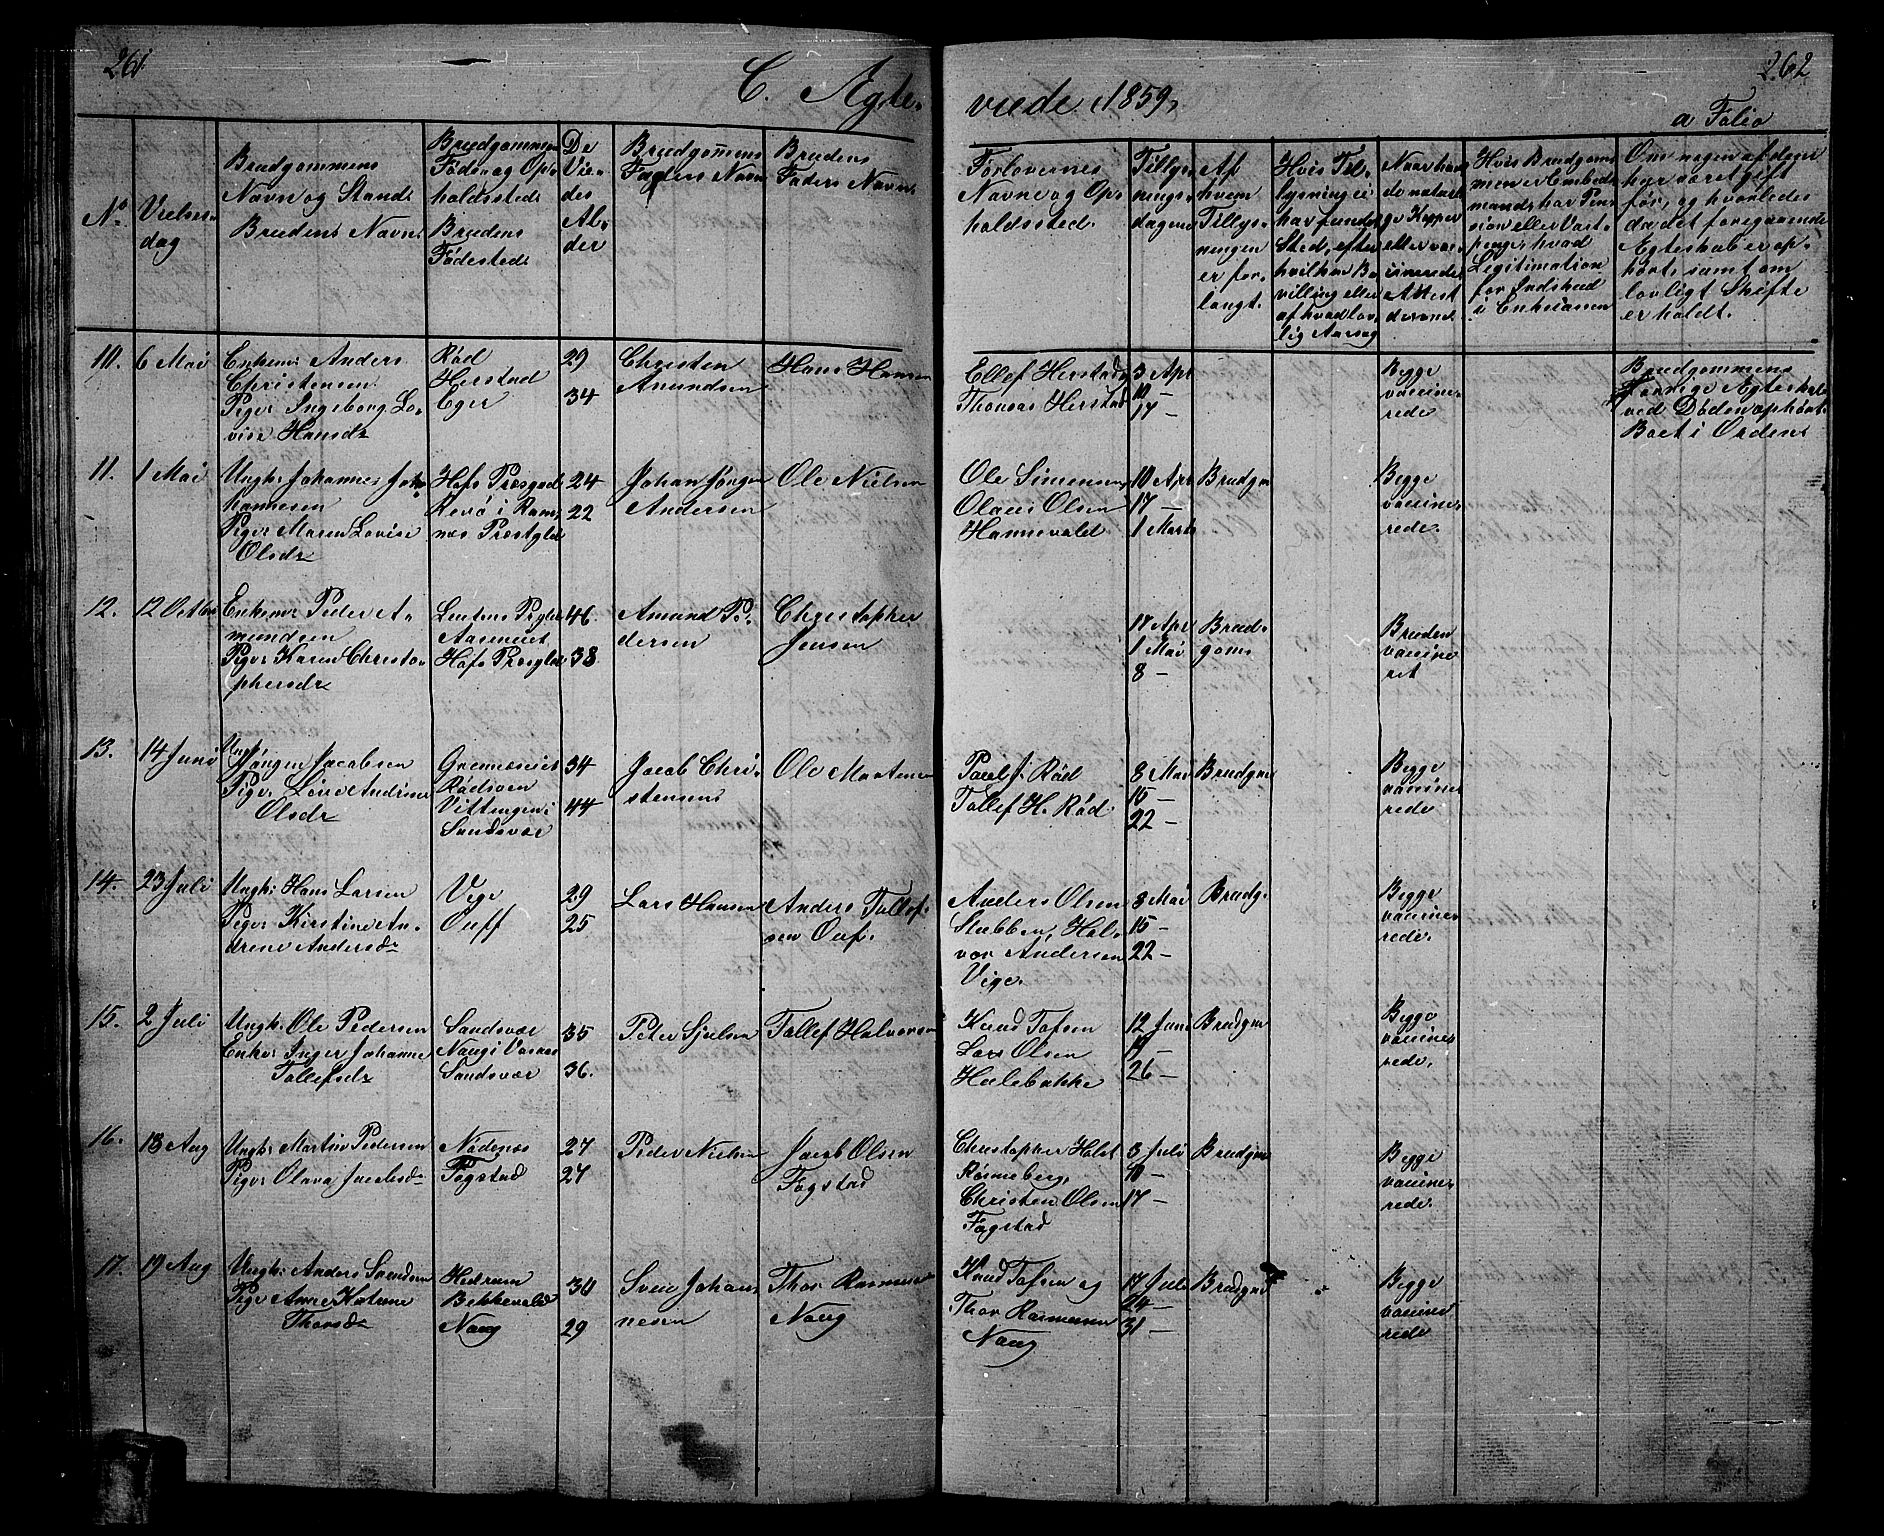 261.
C. Ægte-
viede 1859,
262
a Folio
No
Vielses-
dag
Brudgommens
Navn og Stand
Brudens Navn
Brudgommens
Føde og Op-
holdssted
Brudens
Fødested
De
Vie-
des
Al-
der
Brudgom̄ens
Faders Navn
Brudens
Faders Navn
Forlovernes
Navne og Op-
holdssted.
Tillys-
nings-
dagene
Af
hvem
Tillys-
ningen
er for-
langt.
Hvis Til-
lysning ei
har fundet
Sted, efter
hvilken Be
villing eller
af hvad lov-
lig Aarsag
Naar havde
de naturli-
ge Kopper
eller vac-
cinerede
Attest
derom
Hvis Brudgom
men er Embeds
mand, har Pen
sion eller Vart-
penge, hvad
Legitimation
for Indskud
i Enkecassen
Om nogen af dem
har været gift
før, og hvorledes
da det foregaaende
Ægteskab er op-
hørt samt om
lovligt Skifte
er holdt.
10. 6 Mai
Enkem: Anders
Christensen
Pige: Ingeborg Lo-
vise Hansdr
Rød
Herstad
Eger
29
34
Christen
Amundsen
Hans Hansen
Ellef Herstad
Thomas Herstad
3 Apr
10 —
17 —
Begge
vaccine-
rede
Brudgommens
forrige Ægteskab
ved Døden ophørt
Boet i Orden
11. 1 Mai
Ungk: Johannes Joh
hannesen
Pige: Maren Lovise
Olsdr
Hofs Præsgjæld
Revø i Ram
næs Præstgjeld
24
22
Johan Jørgen
Andersen
Ole Nielsen
Ole Simensen
Olaus Olsen
Hannevold
10 Apr
17 —
1 Marts
Brudgm
Begge
vaccine-
rede.
12. 12 Octbr
Enkem: Peder A-
mundsen
Pige: Karen Christo-
phersdr
Aasmeiet
Hofs Præsgjeld
46.
38
Amund Pe-
dersen
Christopher
Jensen
17 Apr
1 Mai
8 —
Brud-
goms
Bruden
vaccine
ret
13. 14 Juni
Ungk:
Jørgen Jacobsen
Pige: Lovise Andrine
Olsdr
Grennæseiet
Rødsven
Vittingen i
Sandsvær
34
44
Jacob Chri-
stensens
Ole Mortensen
Paul J. Rød
Tollef H. Rød
8 Mai
15 —
22 —
Brudgm
Begge
vaccine
rede
14. 23 Juli
Ungk: Hans Larsen
Pige: Kirstine An-
drene Andersdr
Vige
Ouff
29
25
Lars Hansen
Anders Tollef-
sen Ouf.
Anders Olsen
Stubben, Hal-
vor Andersen
Vige.
8 Mai
15 —
22 —
Brudg.
Begge
vaccine-
rede.
15. 2 Juli
Ungk: Ole Pedersen
Enke: Inger Johanne
Tollefsdr
Sandsvær
Naugi Vasaas
Sandsvær
35
36.
Peter Sjulsen
Tollef Halvorsen
Knud Tofsen
Lars Olsen
Hulebakke
12 Juni
19 —
26 —
Brudgm
Begge
vaccine-
rede.
16. 13 Aug
Ungk: Martin Pedersen
Pige: Olava Jacobsdr
Nødenæs
Fogstad
27
27
Peder Nielsen
Jacob Olsen
Fogstad
Christopher Holst
Rønneberg,
Christen Olsen
Fogstad
3 Juli
10 —
17 —
Brudgm
Begge
vaccine-
rede.
17. 19 Aug
Ungk: Anders Svendsen
Pige Anne Katrine
Thorsdr
Hedrum
Bekkevold
Naug
30
29
Sven Johan-
nesen
Thor Rasmussen
Naug
Knud Tofsen og
Thor Rasmussen
Naug
17 Juli
24 —
31 —
Brudgm
Begge
vaccine-
rede